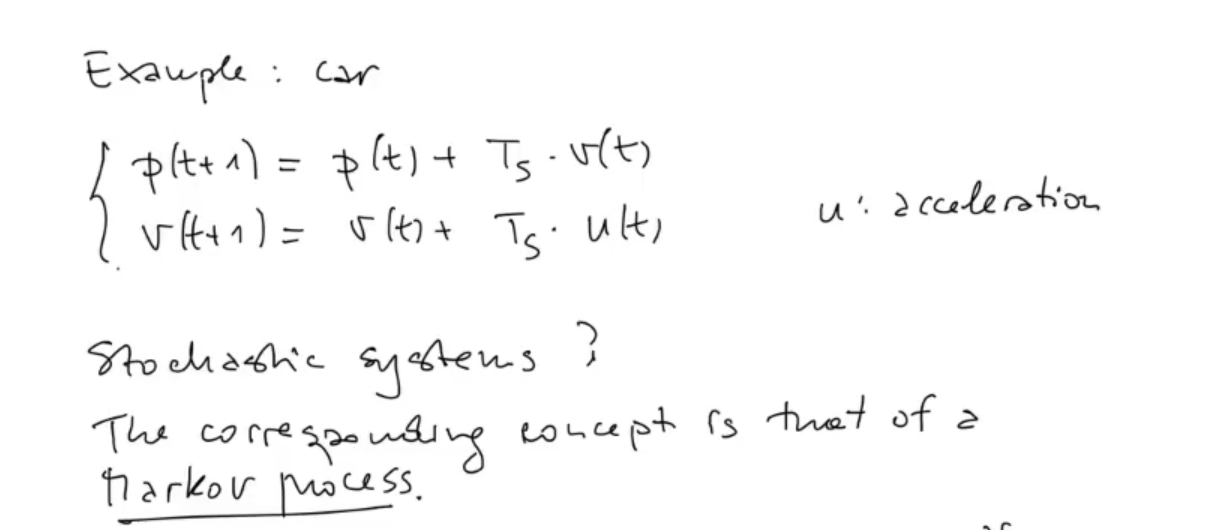 Example : car
p(t+1) = p(t) + Ts · v(t)
u : acceleration
v(t+1) = v(t) + Ts · u(t)
Stochastic systems ?
The corresponding concept is that of a
Markov process.